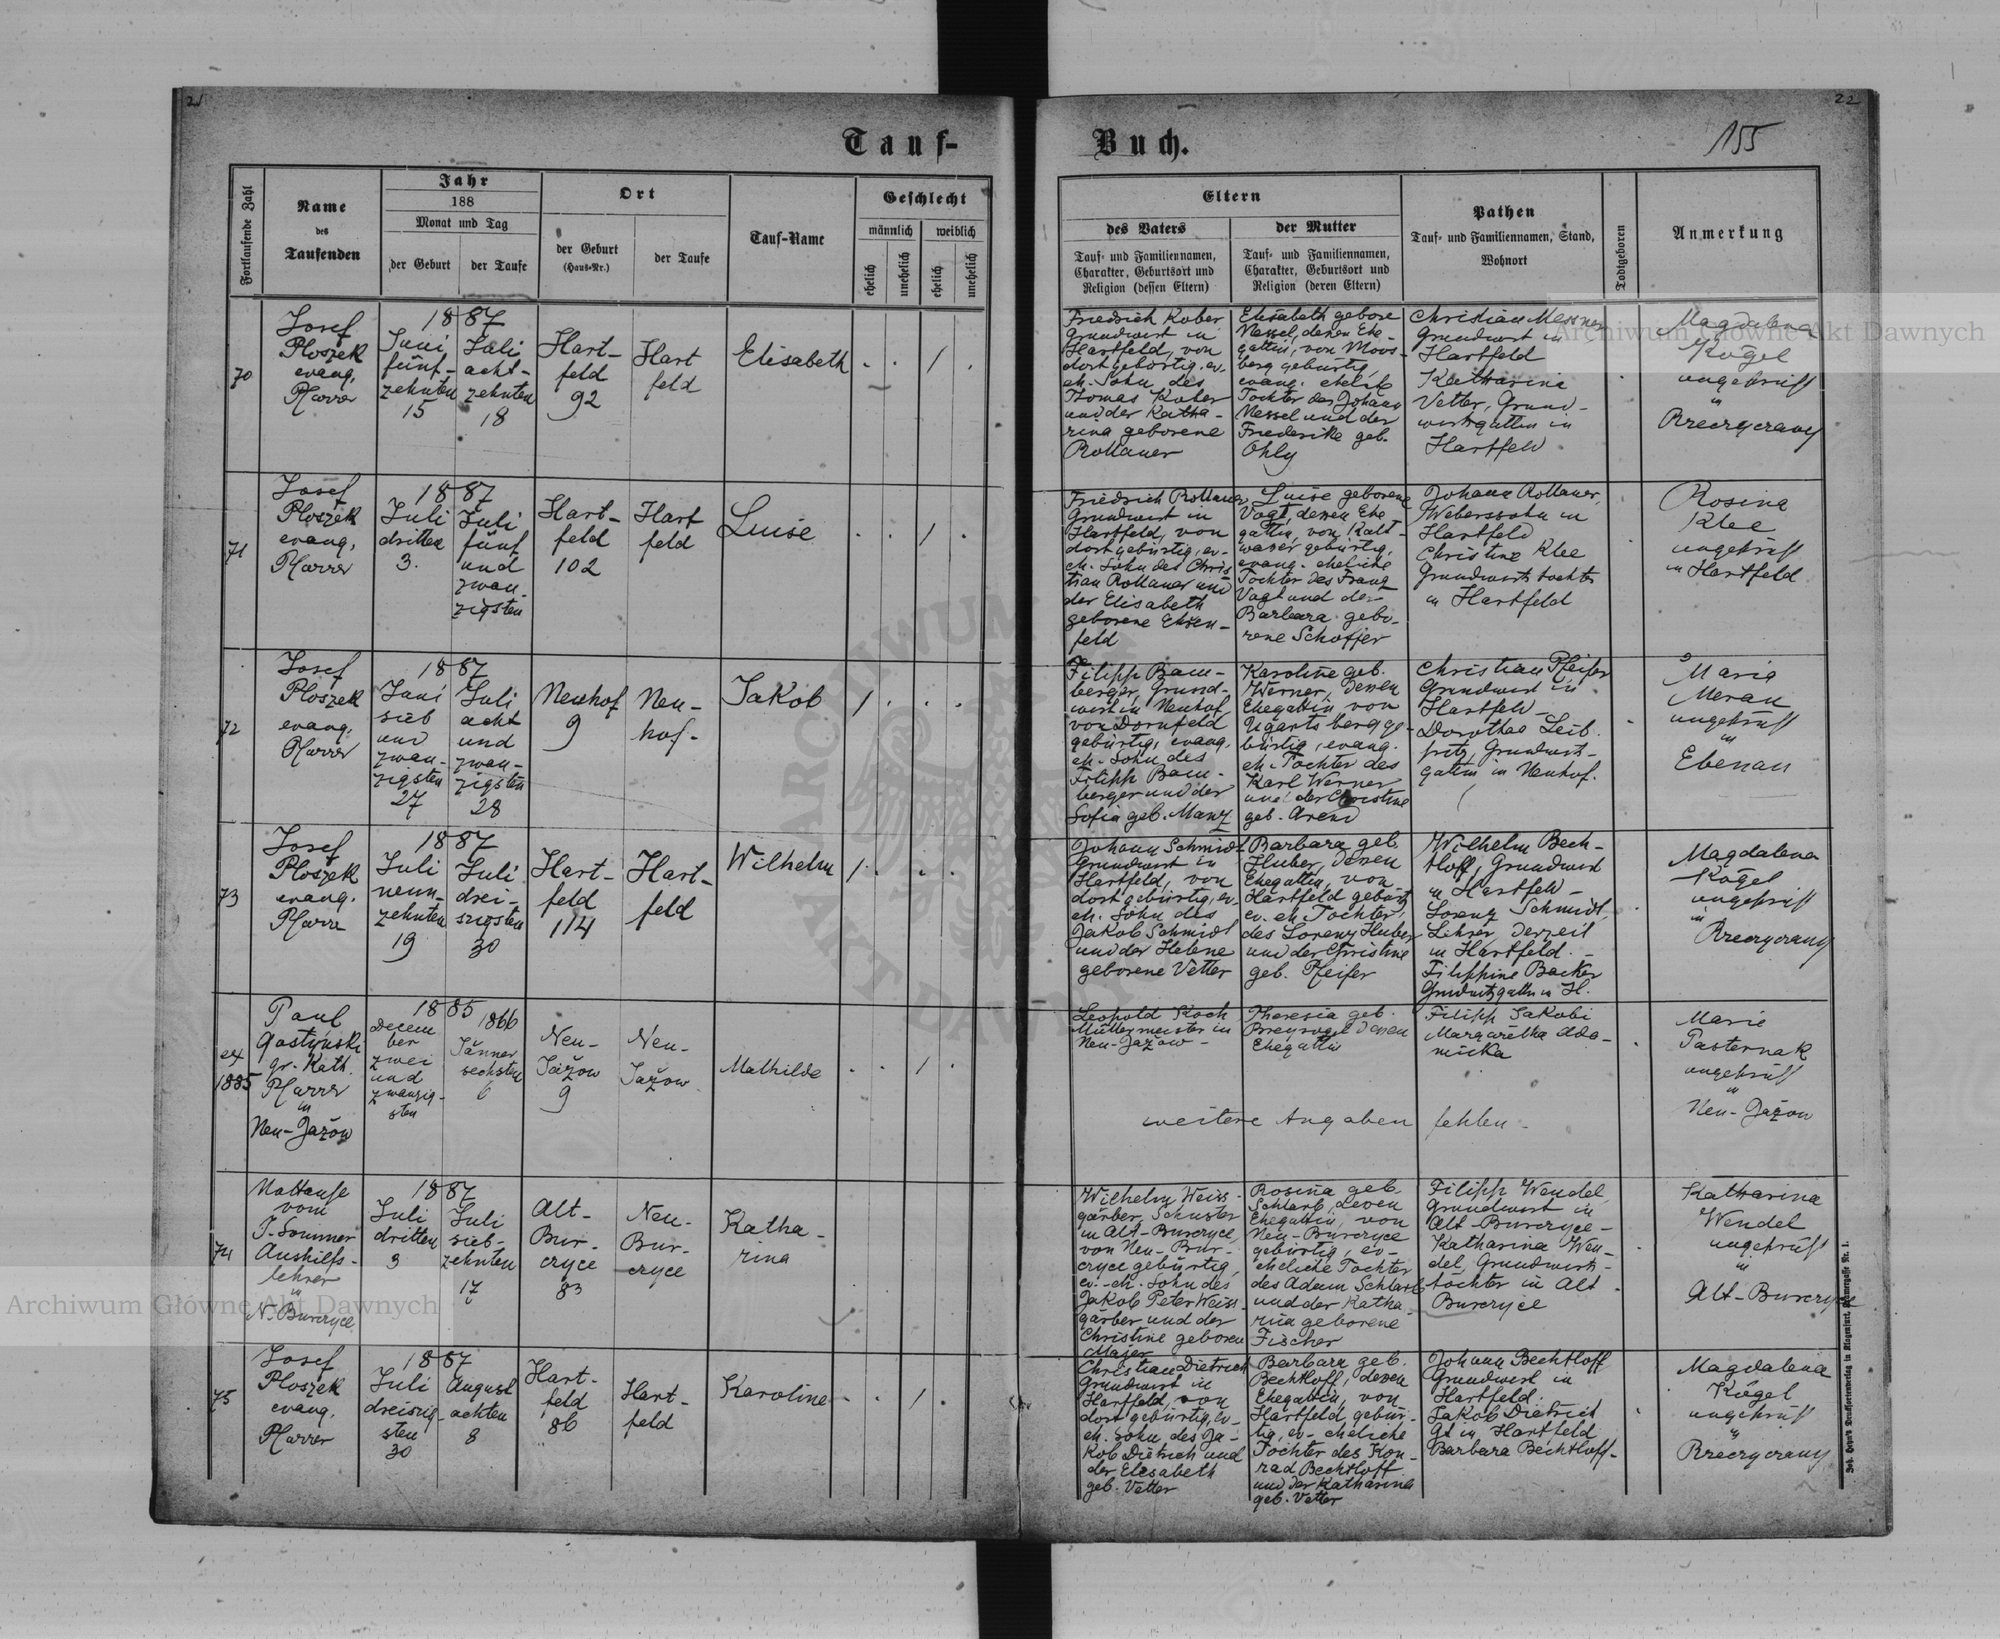 21
22
155
Tauf-
Buch.
Fortlaufende Zahl
Name
des
Taufenden
Jahr
188
Monat und Tag
der Geburt
der Taufe
Ort
der Geburt
(Haus-Nr.)
der Taufe
Tauf-Name
Geschlecht
männlich
weiblich
ehelich
unehelich
ehelich
unehelich
Eltern
des Vaters
Tauf- und Familiennamen,
Charakter, Geburtsort und
Religion (dessen Eltern)
der Mutter
Tauf- und Familiennamen,
Charakter, Geburtsort und
Religion (deren Eltern)
Pathen
Tauf- und Familiennamen, Stand,
Wohnort
Todtgeboren
Anmerkung
70
Josef
Ploszek
evang.
Pfarrer
1887
Juni
fünf-
zehnten
15
Juli
acht-
zehnten
18
Hart-
feld
92
Hart
feld
Elisabeth
. . 1 .
Friedrich Kuber
Grundwirt in
Hartfeld, von
dort gebürtig, ev.
eh. Sohn des
Thomas Kuber
und der Katha-
rina geborene
Rollauer
Elisabeth gebore
Nessel, dessen Ehe-
gattin, von Moos-
berg gebürtig,
evang. eheliche
Tochter des Johann
Nessel und der
Friederike geb.
Ohly
Christian Messner
Grundwirt in
Hartfeld
Katharina
Vetter, Grund-
wirtsgattin in
Hartfeld
Magdalena
Kögel
ungeprüft
in
Przerczany
71
Josef
Ploszek
evang.
Pfarrer
1887
Juli
dritten
3.
Juli
fünf
und
zwan-
zigsten
Hart-
feld
102
Hart
feld
Luise
. . 1 .
Friedrich Rollauer
Grundwirt in
Hartfeld, von
dort gebürtig, ev-
eh. Sohn des Chris
tian Rollauer und
der Elisabeth
geborene Ehsen-
feld
Luise geborene
Vogt, dessen Ehe
gattin, von Kalt-
waser gebürtig,
evang. eheliche
Tochter des Franz
Vogt und der
Barbara gebo-
rene Schoffer
Johann Rollauer,
Weberssohn in
Hartfeld
Christine Klee
Grundwirtstochter
in Hartfeld
Rosina
Klee
ungeprüft
in Hartfeld
72
Josef
Ploszek
evang.
Pfarrer
1887
Juni
sieb
und
zwan-
zigsten
27
Juli
acht
und
zwan-
zigsten
28
Neuhof
9
Neu-
hof-
Jakob
1 . . .
Filipp Bam-
berger, Grund-
wirt in Neuhof
von Dornfeld
gebürtig, evang.
eh. Sohn des
Filipp Bam-
berger und der
Sofia geb. Manz
Karoline geb.
Werner, dessen
Ehegattin von
Ugartsberg ge-
bürtig, evang.
eh. Tochter des
Karl Werner
und der Christine
geb. Arend
Christian Pfeifer
Grundwirt in
Hartfeld-
Dorothea Leib.
fritz, Grundwirt-
gattin in Neuhof.
Maria
Meran
ungeprüft
in
Ebenau
73
Josef
Ploszek
evang.
Pfarrer
1887
Juli
neun-
zehnten
19
Juli
drei-
szigsten
30
Hart-
feld
114
Hart-
feld
Wilhelm
1 . . .
Johann Schmidt
Grundwirt in
Hartfeld, von
dort gebürtig, ev.
eh. Sohn des
Jakob Schmidt
und der Helene
geborene Vetter
Barbara geb.
Huber, dessen
Ehegattin, von
Hartfeld gebürt.
ev. eh. Tochter,
des Lorenz Huber
und der Christine
geb. Pfeifer
Wilhelm Bech-
tloff, Grundwirt
in Hartfeld-
Lorenz Schmidt,
Lehrer derzeit
in Hartfeld. -
Filippine Becker
Grundwirtsgattin in H.
Magdalena
Kögel
ungeprüft
in
Przerczany
ex
1885
Paul
Gostyński
gr. Kath.
Pfarrer
in
Neu-Jażow
1885
1866
Decem
ber
zwei
und
zwanzig-
sten
Jänner
sechsten
6
Neu-
Jażow
9
Neu-
Jażow
Mathilde
. . 1 .
Leopold Koch
Müllermeister in
Neu-Jażow-
Theresia geb.
dessen
Ehegattin
Filipp Jakobi
Margaretha Ada-
micka
weitere Angaben fehlen -
Marie
Pasternak
ungeprüft
in
Neu-Jażow
74
Nottaufe
vom
J. Sommer
Aushilfs-
lehrer
in
N. Burczyce
1887
Juli
dritten
3
Juli
sieb-
zehnten
17
Alt-
Bur-
czyce
83
Neu-
Bur-
czyce
Katha-
rina
Wilhelm Weiss-
gärber, Schuster
in Alt-Burczyce,
von Neu-Bur-
czyce gebürtig,
ev.-eh. Sohn des
Jakob Peter Weiss-
gärber und der
Christine geboren
Majer
Rosina geb.
Schlarb, dessen
Ehegattin, von
Neu-Burczyce
gebürtig, ev-
eheliche Tochter
des Adam Schlarb
und der Katha-
rina geborene
Fischer
Filipp Wendel,
Grundwirt in
Alt-Burczyce-
Katharina Wen-
del, Grundwirts-
töchter in Alt-
Burczyce
Katharina
Wendel
ungeprüft
in
Alt-Burczyce
75
Josef
Ploszek
evang.
Pfarrer
1887
Juli
dreiszig-
sten
30
August
achten
8
Hart-
feld
86
Hart-
feld
Karoline
. . 1 .
Christian Dietrich
Grundwirt in
Hartfeld, von
dort gebürtig, ev-
eh. Sohn des Ja-
kob Dietrich und
der Elisabeth
geb. Vetter
Barbara geb.
Bechtloff, dessen
Ehegattin, von
Hartfeld, gebür-
tig, ev- eheliche
Tochter des Kon-
rad Bechtloff
und der Katharina
geb. Vetter
Johann Bechtloff
Grundwirt in
Hartfeld.
Jakob Dietrich
Gt in Hartfeld
Barbara Bechtloff-
Magdalena
Kögel
ungeprüft
in
Przerczany
Archiwum Główne Akt Dawnych
Archiwum Główne Akt Dawnych